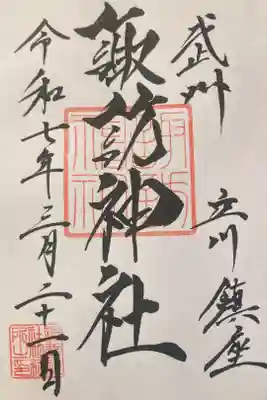 武州
立川 鎮座
諏訪神社
令和七年三月二十一日